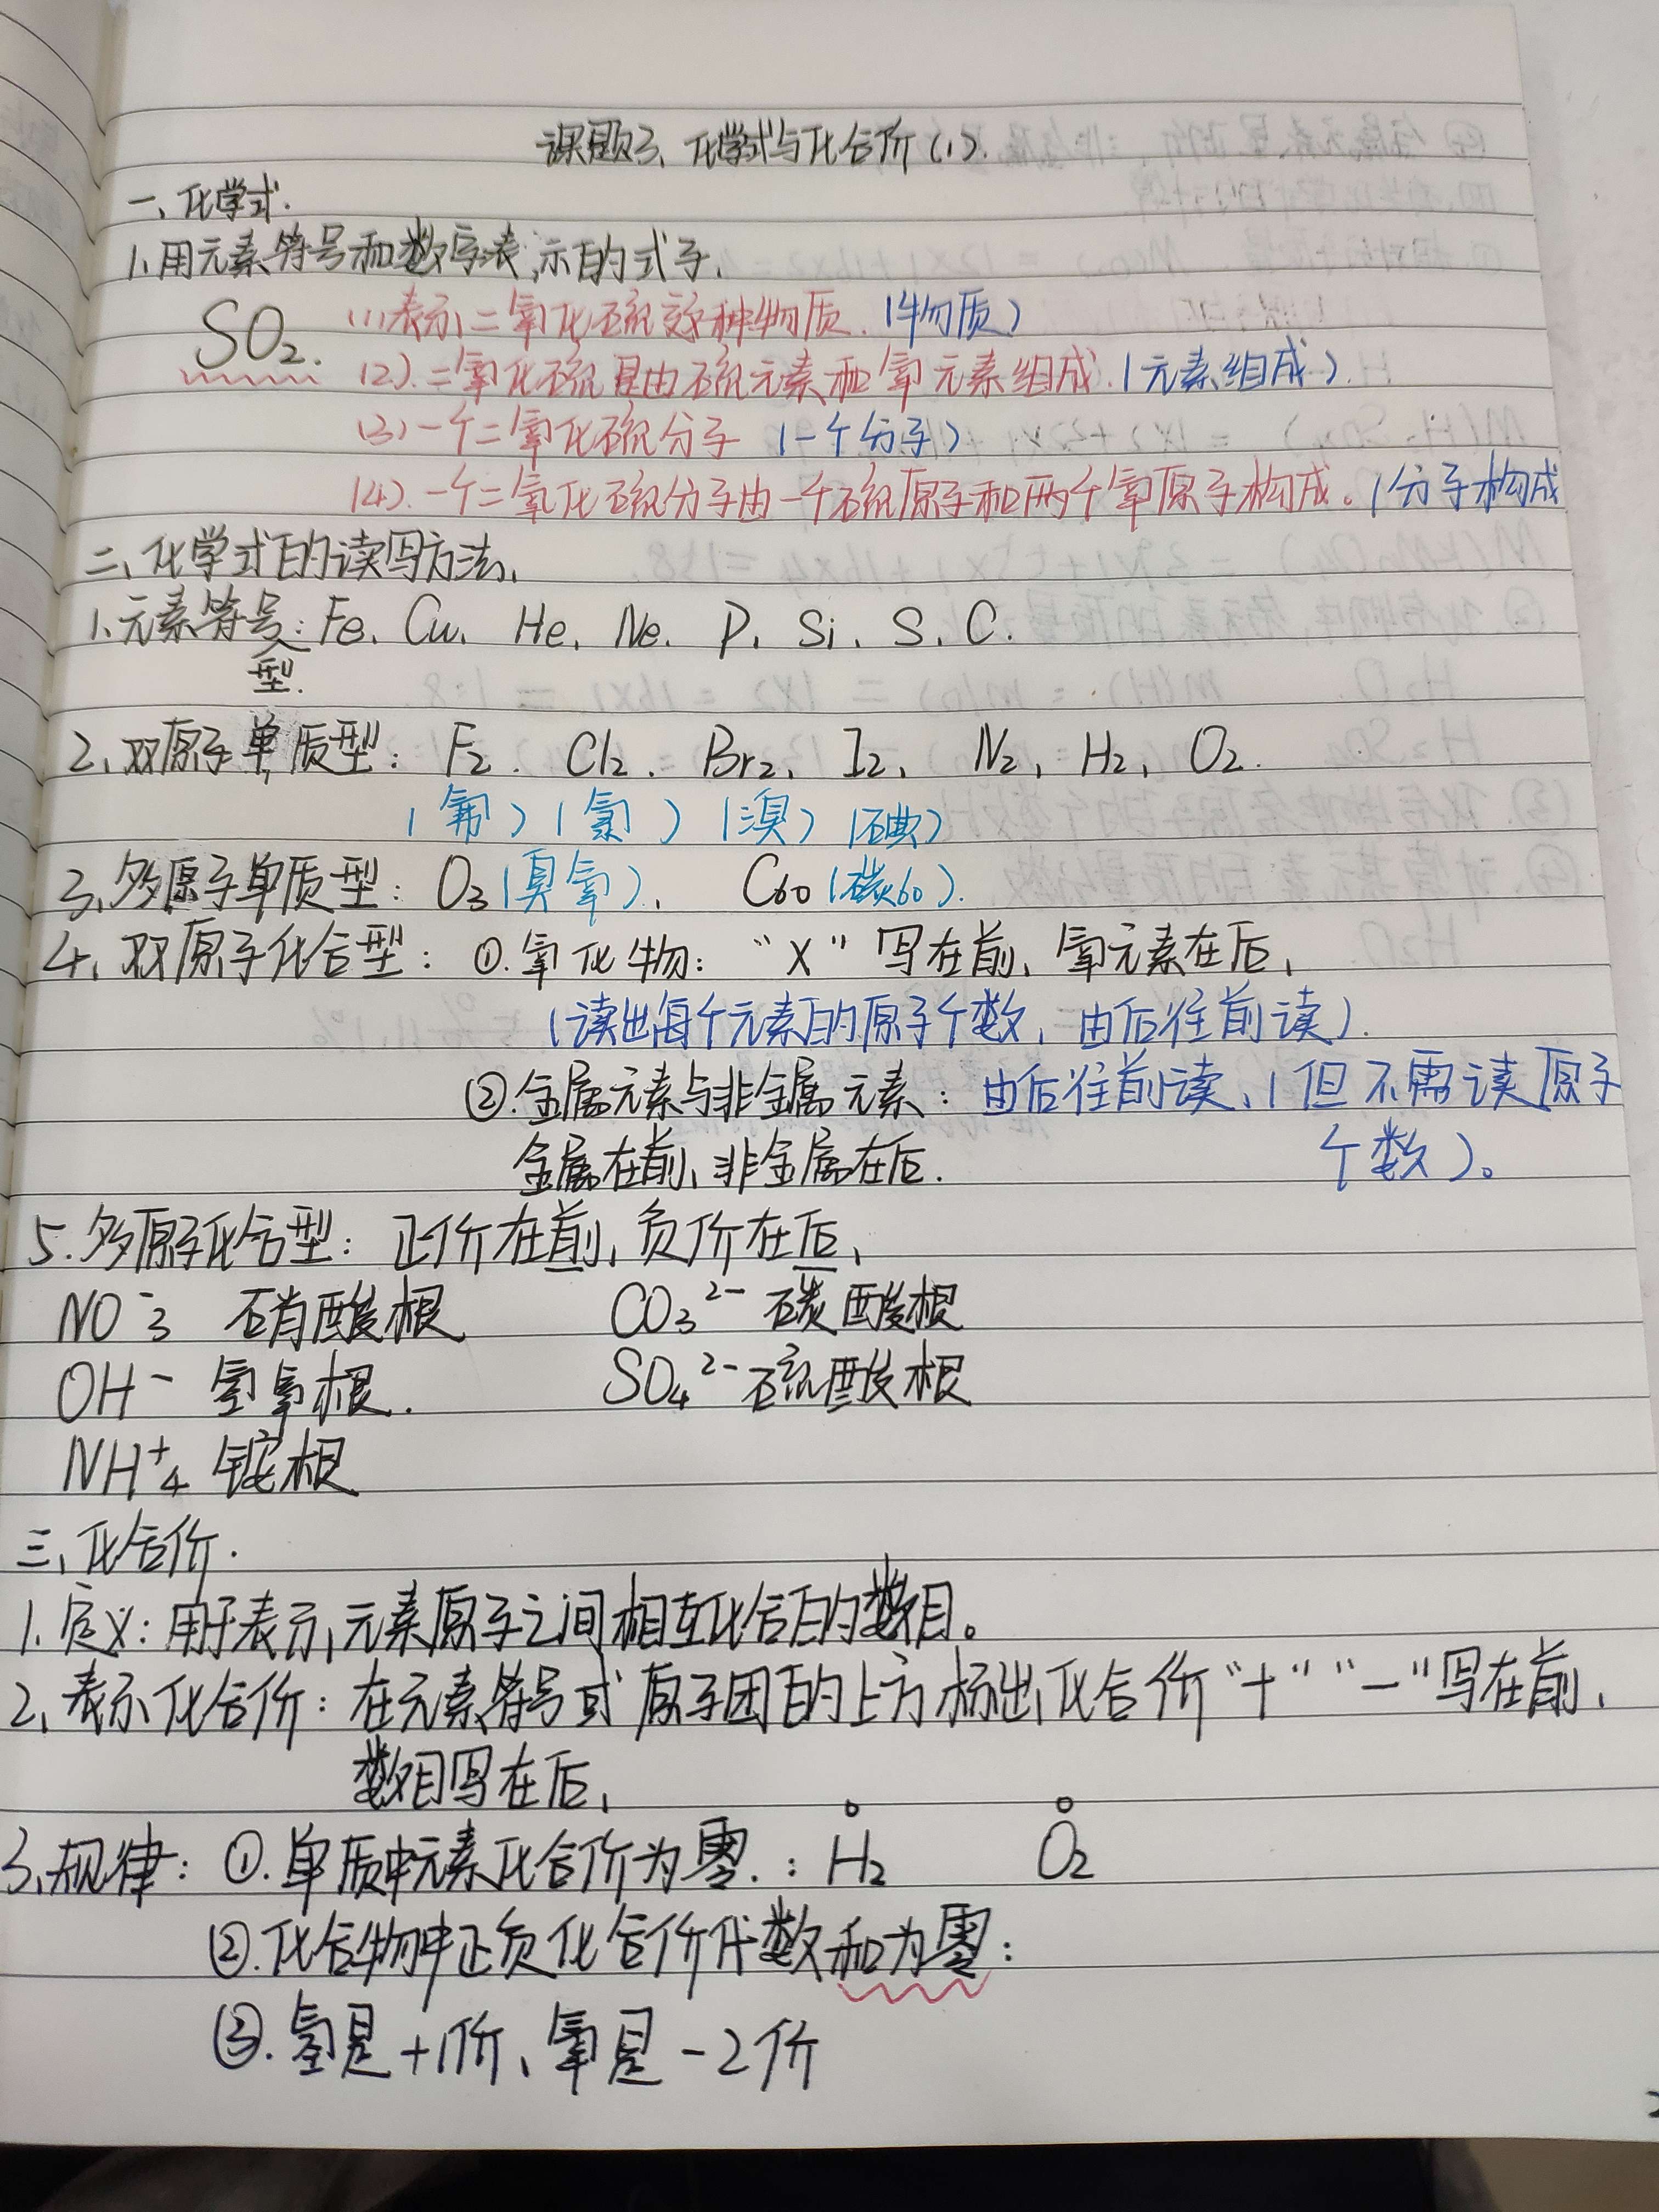 课题3、化学式与化合价(1).
一、化学式.
1、用元素符号和数字表示的式子.
SO₂. (1)表示二氧化硫这种物质.(物质)
(2).二氧化硫是由硫元素和氧元素组成.(元素组成).
(3)一个二氧化硫分子(一个分子)
(4).一个二氧化硫分子由一个硫原子和两个氧原子构成。(分子构成
二、化学式的读写方法、
1、元素符号: Fe、Cu、He、Ne、P、Si、S、C.
型.
2、双原子单质型: F₂. Cl₂、Br₂、I₂、N₂、H₂、O₂.
(氟)(氯)(溴)(碘)
3、多原子单质型: O₃(臭氧)、 C₆₀(碳60).
4、双原子化合型: ①.氧化物: “X”写在前、氧元素在后、
(读出每个元素的原子个数、由后往前读).
②.金属元素与非金属元素: 由后往前读、(但不需读原子
金属在前、非金属在后. 个数)。
5.多原子化合型: 正价在前、负价在后、
NO⁻₃ 硝酸根 CO₃²⁻ 碳酸根
OH⁻ 氢氧根. SO₄²⁻ 硫酸根
NH⁺₄ 铵根
三、化合价.
1.定义: 用于表示元素原子之间相互化合的数目。
2、表示化合价: 在元素符号或原子团的上方标出化合价“+”“-”写在前、
数目写在后、
0 0
3、规律: ①.单质中元素化合价为零.: H₂ O₂
②.化合物中正负化合价代数和为零:
③.氢是+1价、氧是-2价